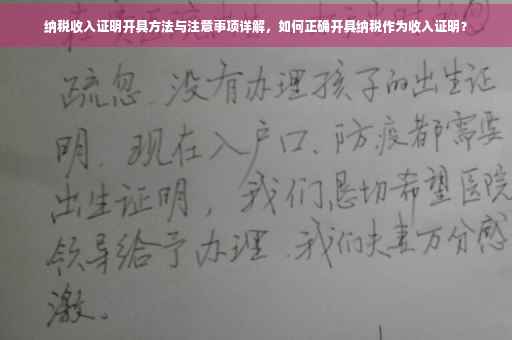 纳税收入证明开具方法与注意事项详解，如何正确开具纳税作为收入证明？
疏忽、没有办理孩子的出生证
明。现在入户口、防疫都需要
出生证明，我们恳切希望医院
领导给予办理、我们夫妻万分感
激。